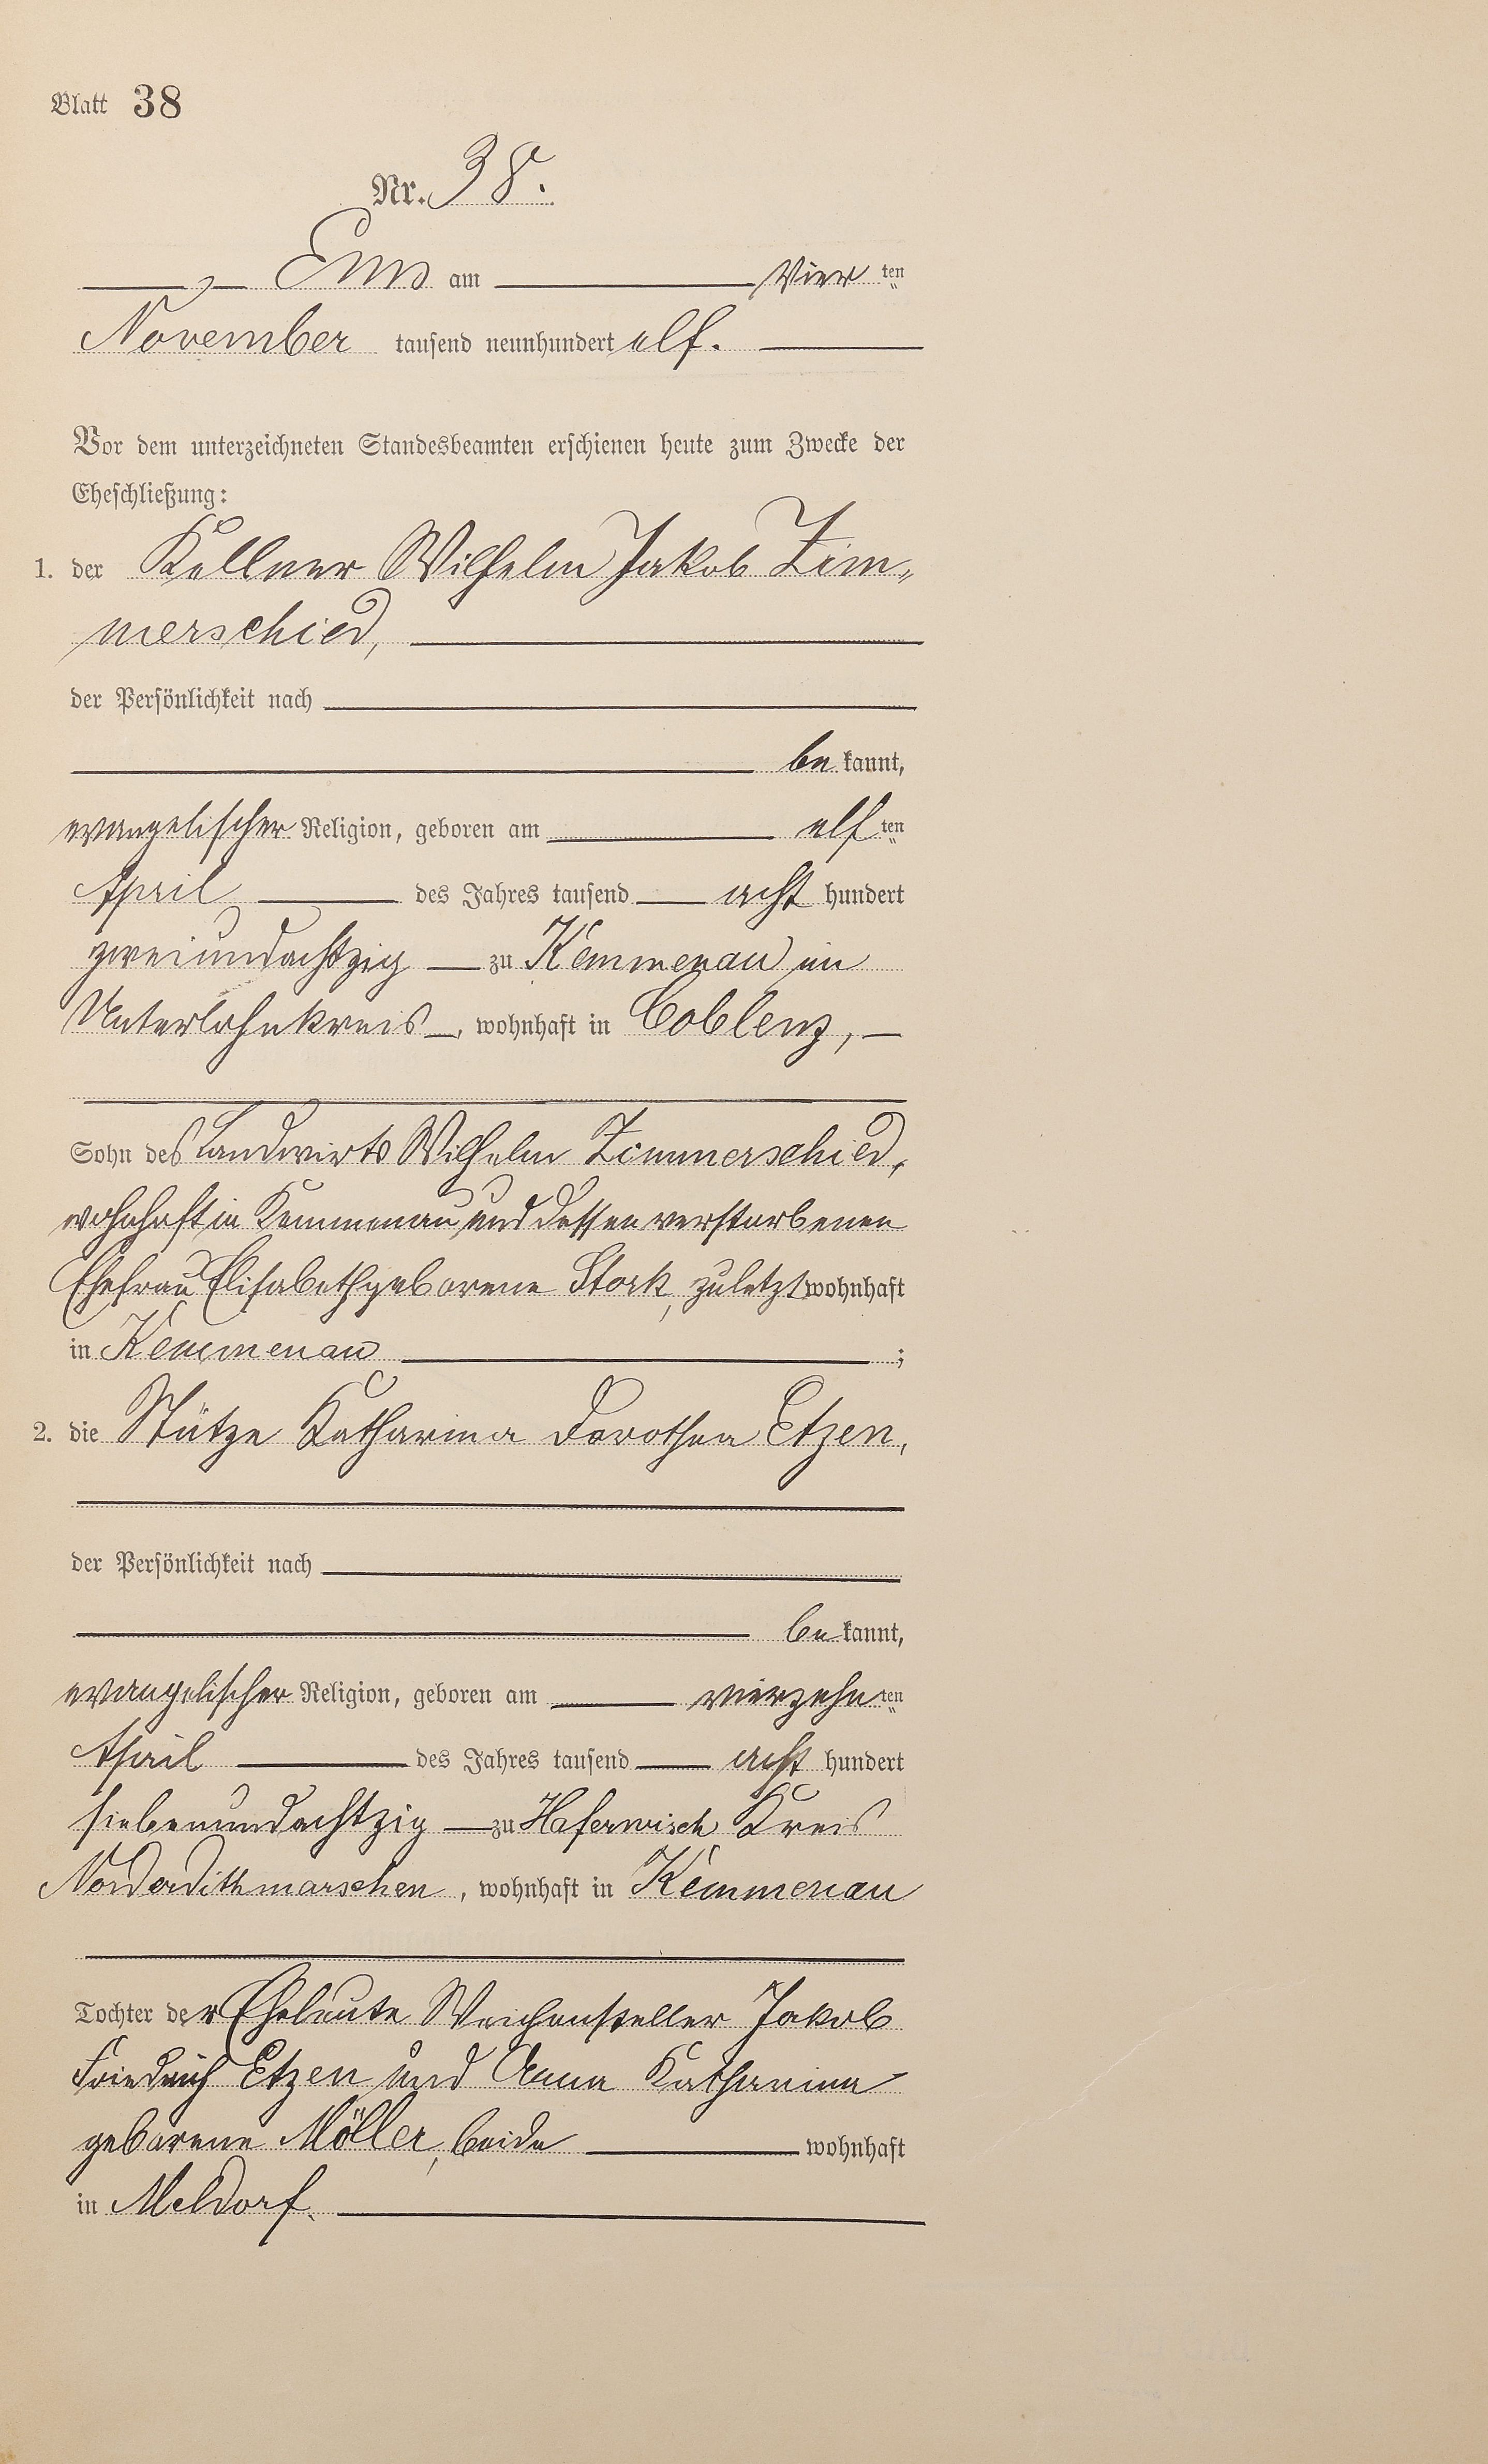 Blatt 38
Nr. 38.
Ems am Vier ten
November tausend neunhundert elf.
Vor dem unterzeichneten Standesbeamten erschienen heute zum Zwecke der
Eheschließung:
1. der Kellner Wilhelm Jakob Zim„
merschied,
der Persönlichkeit nach
be kannt,
evangelischer Religion, geboren am elf ten
April des Jahres tausend acht hundert
zweiundachtzig zu Kemmenau im
Unterlahnkreis, wohnhaft in Coblenz,
Sohn des Landwirts Wilhelm Zimmerschied,
wohnhaft in Kemmenau und dessen verstorbenen
Ehefrau Elisabeth geborene Stork, zuletzt wohnhaft
in Kemmenau ;
2. die Stütze Katharina Dorothea Etzen,
der Persönlichkeit nach
be kannt,
evangelischer Religion, geboren am vierzehn ten
April des Jahres tausend acht hundert
siebenundachtzig zu Haferwisch Kreis
Norderdithmarschen, wohnhaft in Kemmenau
Tochter der Eheleute Weichensteller Jakob
Friedrich Etzen und Anna Katharina
geborene Möller, beide wohnhaft
in Meldorf.